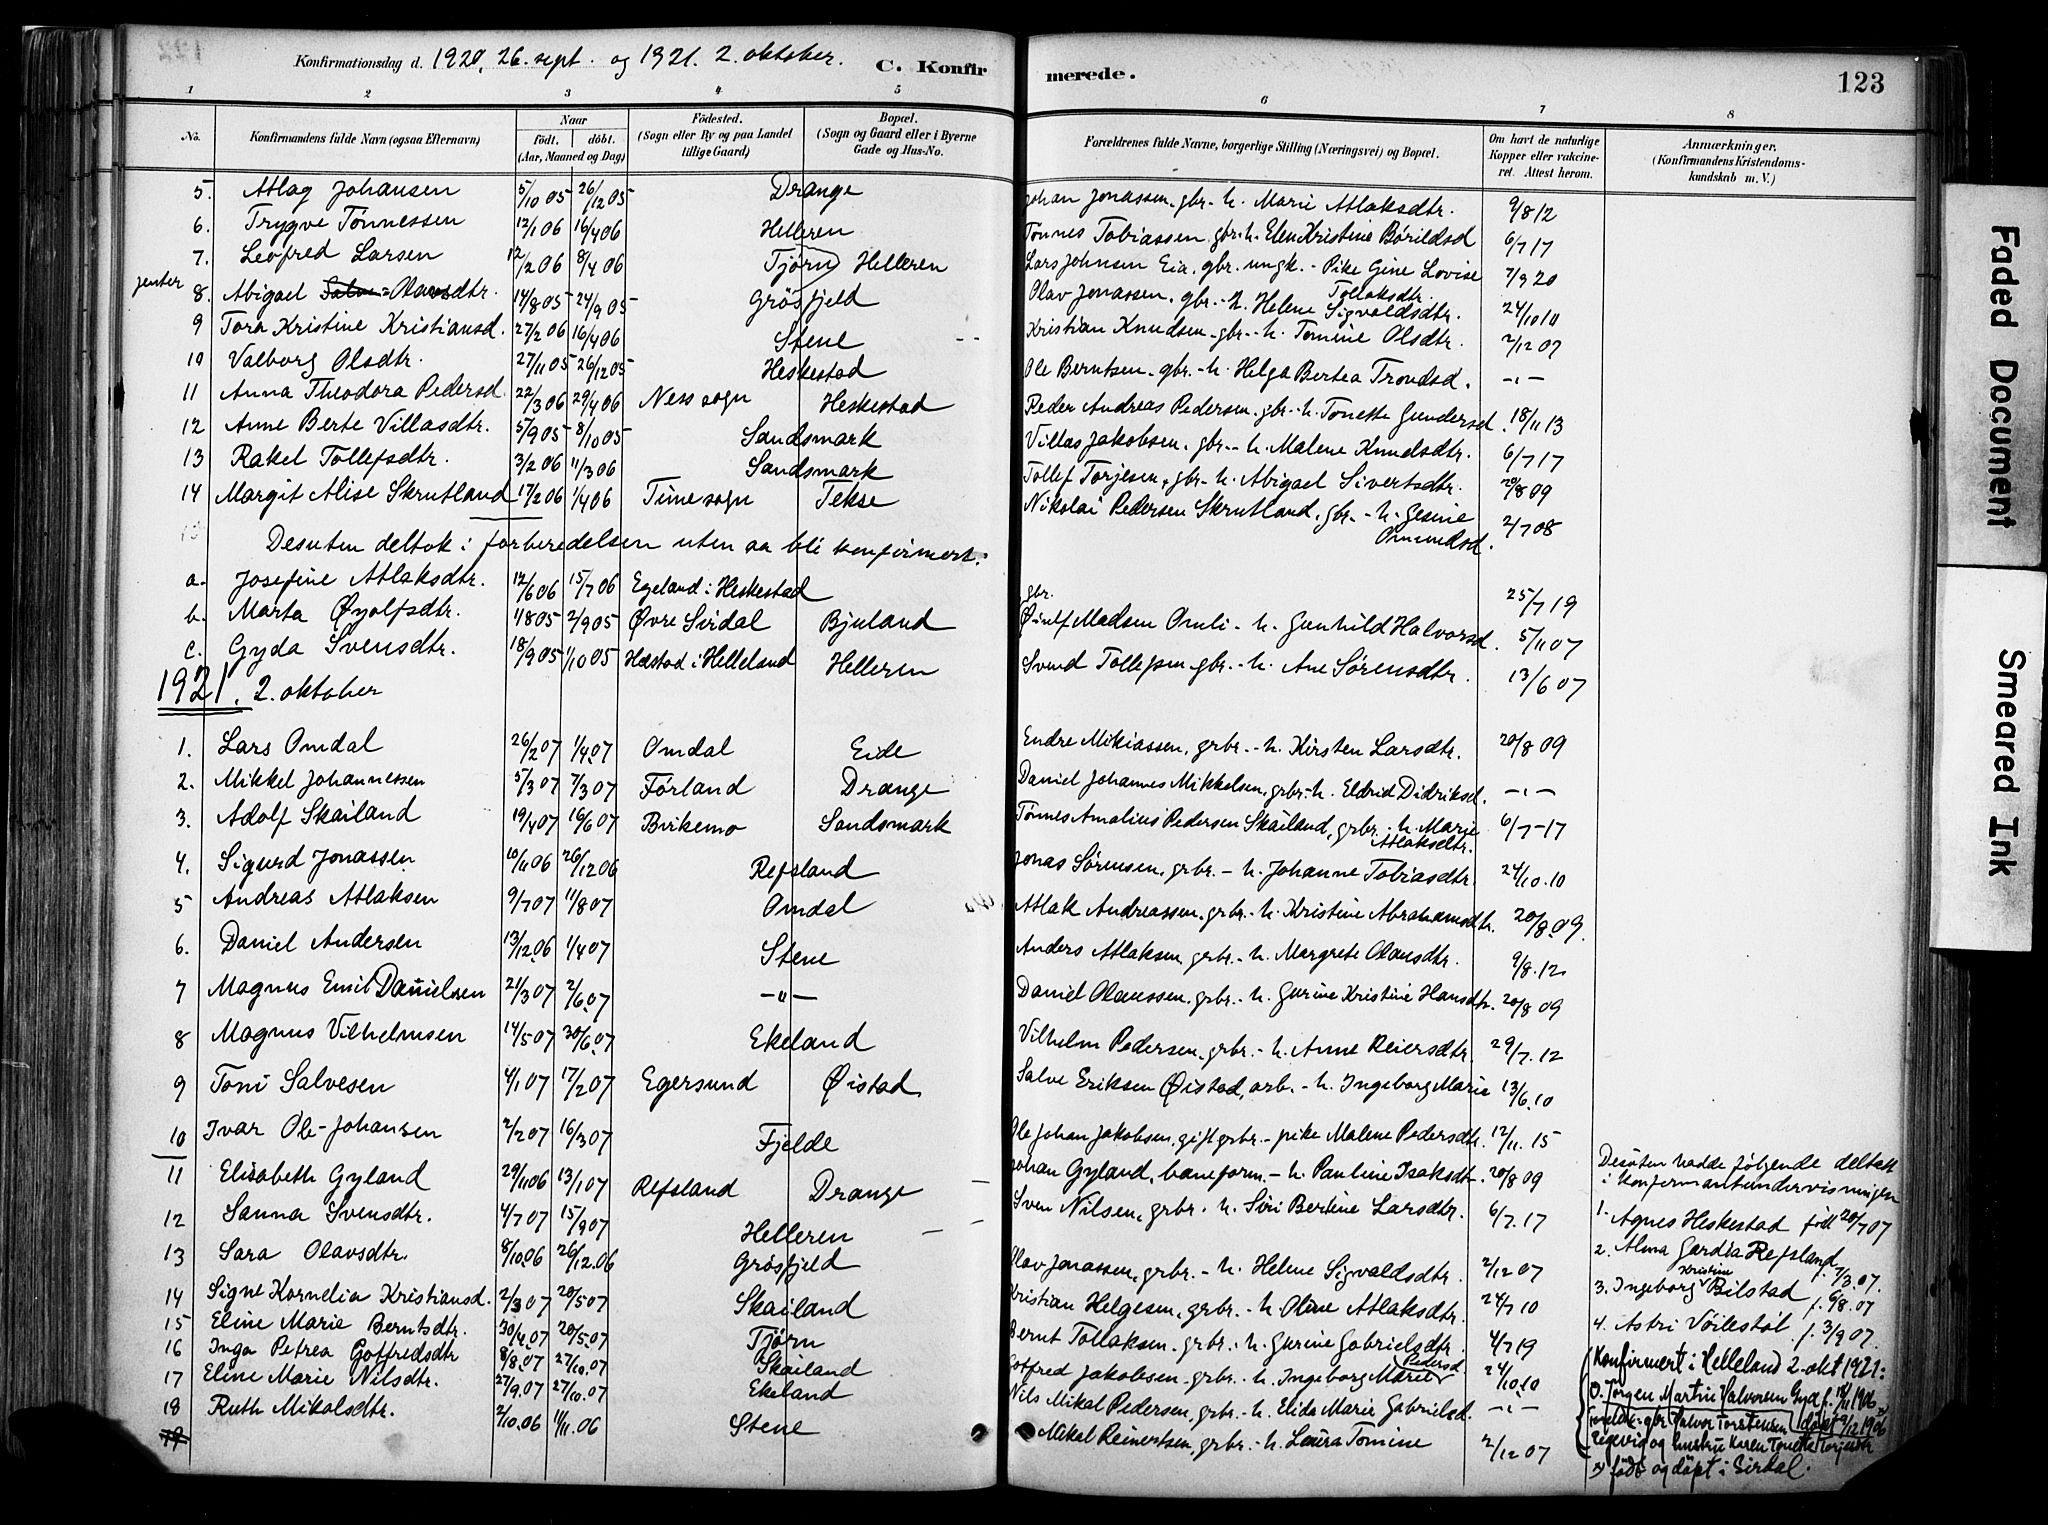 Konfirmationsdag d. 1920, 26. sept. og 1921. 2. oktober. C. Konfirmerede. 123
1 2 3 4 5 6 7 8
No. Konfirmandens fulde Navn (ogsaa Efternavn) Naar født. døbt. (Aar, Maaned og Dag) Fødested. (Sogn eller By og paa Landet tillige Gaard) Bopæl. (Sogn og Gaard eller i Byerne Gade og Hus-No. Forældrenes fulde Navne, borgerlige Stilling (Næringsvei) og Bopæl. Om havt de naturlige Kopper eller vakcineret. Attest herom. Anmærkninger. (Konfirmandens Kristendomskundskab m. V.)
5. Atlag Johansen 5/10 05 26/12 05 Drange Johan Jonassen. gbr. - h. Marie Atlaksdtr. 9/8 12
6. Trygve Tønnessen 12/1 06 16/4 06 Helleren Tønnes Tobiassen. gbr. h. Elen Kristine Børildsd 6/7 17
7. Leofred Larsen 12/2 06 8/4 06 Tjørn Helleren Lars Johnsen Eia. gbr. ungk. - Pike Gine Lovise Tollaksdtr. 7/9 20
jenter
8. Abigael Olavsdtr. 14/8 05 24/9 05 Grösfjeld Olav Jonassen. gbr. - h. Helene Sigvaldsdtr. 24/10 10
9 Tora Kristine Kristiansd. 27/2 06 16/4 06 Stene Kristian Knudsen. gbr. - h. Tomine Olsdtr. 2/12 07
10 Valborg Olsdtr. 27/11 05 26/12 05 Heskestad Ole Berntsen. gbr. - h. Helga Bertea Trondsd. -"-
11 Anna Theodora Pedersd. 22/3 06 29/4 06 Ness sogn Heskestad Peder Andreas Pedersen. gbr. - h. Tonette Gundersd. 18/11 13
12 Anne Berte Villasdtr. 5/9 05 8/10 05 Sandsmark Villas Jakobsen. gbr. - h. Malene Knudsdtr. 6/7 17
13 Rakel Tollefsdtr. 3/2 06 11/3 06 Sandsmark Tollef Torjesen, gbr. - h. Abigael Sivertsdtr. 20/8 09
14 Margit Alise Skrutland 17/2 06 1/4 06 Time sogn Tekse Nikolai Pedersen Skrutland, gbr. - h. Gesine Omundsd. 2/7 08
Desuten deltok i forberedelsen uten aa bli konfirmert:
a. Josefine Atlaksdtr. 12/6 06 15/7 06 Egeland i Heskestad gbr. 25/7 19
b. Marta Øyolfsdtr. 1/8 05 2/9 05 Øvre Sirdal Bjuland Øiulf Madsen Omli - h. Gunhild Halvorsd. 5/11 07
c. Gyda Svensdtr. 18/9 05 1/10 05 Hæstad i Helleland Helleren Svend Tollefsen gbr. - h. Ane Sørensdtr. 13/6 07
1921. 2. oktober
1. Lars Omdal 26/2 07 1/4 07 Omdal Eide Endre Mikiassen, grbr. - h. Kirsten Larsdtr. 20/8 09
2. Mikkel Johannessen 5/3 07 7/3 07 Førland Drange Daniel Johannes Mikkelsen, grbr. - h. Eldrid Didriksd. -"-
3. Adolf Skailand 19/4 07 16/6 07 Birkemo Sandsmark Tønnes Amalius Pedersen Skailand, grbr. - h. Marie Atlaksdtr. 6/7-17
4. Sigurd Jonassen 10/11 06 26/12 06 Refsland Jonas Sørensen, grbr. - h. Johanne Tobiasdtr. 24/10. 10
5 Andreas Atlaksen 9/7 07 11/8 07 Omdal Atlak Andreassen, grbr. - h. Kristine Abrahamsdtr. 20/8. 09.
6. Daniel Andersen 13/12. 06 1/4 07 Stene Anders Atlaksen, grbr. - h. Margrete Olausdtr. 9/8. 12
7 Magnus Emil Danielsen 21/3 07 2/6. 07 -"- Daniel Olaussen. grbr. - h. Gurine Kristine Hansdtr. 20/8 09
8 Magnus Vilhelmsen 14/5 07 30/6. 07 Ekeland Vilhelm Pedersen, grbr. - h. Anne Reiersdtr. 29/7. 12
9 Toni Salvesen 4/1 07 17/2 07 Egersund Øistad Salve Eriksen Øistad, arb. - h. Ingeborg Marie 13/6. 10
10 Ivar Ole-Johansen 2/2 07 16/3 07 Fjelde Ole Johan Jakobsen, gift grbr. - pike Malene Pedersdtr. 12/11. 15
11 Elisabeth Gyland 29/11 06 13/1 07 Refsland Drange Johan Gyland, baneform. - h. Pauline Isaksdtr. 20/8 09
12 Sanna Svensdtr. 4/7 07 15/9 07 Helleren Sven Nilsen, grbr. h. Siri Bertine Larsdtr. 6/7. 17
13 Sara Olavsdtr. 8/10. 06 26/12. 06 Grösfjeld Olav Jonassen, grbr. - h. Helene Sigvaldsdtr. 2/12 07
14 Signe Kornelia Kristiansd. 2/3 07 20/5 07 Skailand Kristian Helgesen, grbr. - h. Oline Atlaksdtr. 24/7 10
15 Eline Marie Berntsdtr. 30/4. 07 20/5. 07 Tjørn Bernt Tollaksen. grbr. - h. Gurine Gabrielsdtr. 4/7 19
16 Inga Petrea Gotfredsdtr 8/8. 07 27/10. 07 Skailand Gotfred Jakobsen. grbr. - h. Ingeborg Marie Pedersd. 24/10. 10
17 Eline Marie Nilsdtr. 27/9. 07 27/10. 07 Ekeland Nils Mikal Pedersen, grbr. - h. Elida Marie Gabrielsd. -"-
18 Ruth Mikalsdtr. 2/10. 06 1/11. 06 Stene Mikal Reinertsen, grbr. - h. Laura Tomine 2/12 07
19
Desuten hadde følgende deltatt
i konfirmantundervisningen
1. Agnes Heskestad født 20/7 07
2. Alma Gardea Refsland f. 7/3. 07.
3. Ingeborg Kristin Bilstad f. 6/8. 07
4. Astri Vöilestöl f. 3/9 07.
Konfirmert i Helleland 2. okt 1921:
O. Jørgen Martin Halvorsen Gyd f. 18/11 1906
Foreldr. gbr. Halvor Torstensen døpt 9/12 1906
Tegevig og hustru Karen Tonette Torjesdtr
x) født og døpt i Sirdal.
Faded Document
Smeared Ink